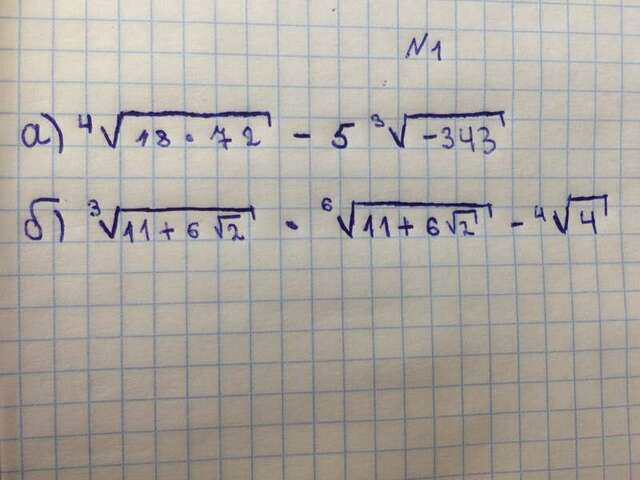 N1
а) ⁴√(18 · 72) - 5 ³√(-343)
б) ³√(11 + 6√2) · ⁶√(11 + 6√2) - ⁴√4